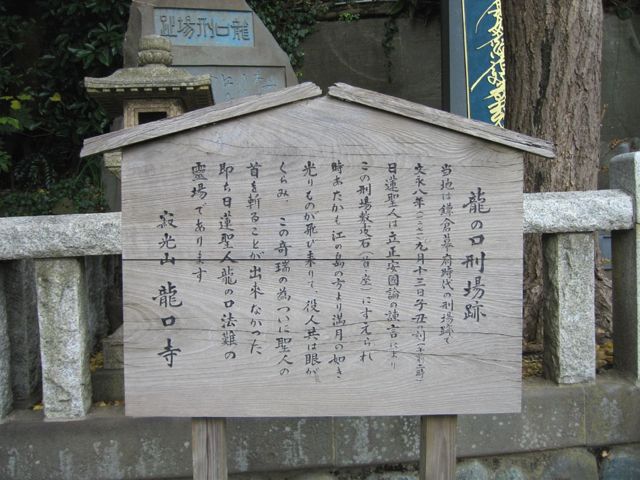 龍口刑場趾
龍の口刑場跡
当地は鎌倉幕府時代の刑場跡で
文永八年(一二七一)九月十三日子丑の刻(午前二時)
日蓮聖人は立正安国論の諌言により
この刑場敷皮石(首の座)にすえられ
時あたかも江の島の方より満月の如き
光りものが飛び来りて、役人共は眼が
くらみ この奇瑞の為ついに聖人の
首を斬ることが出来なかった
即ち日蓮聖人龍の口法難の
霊場であります
寂光山 龍口寺